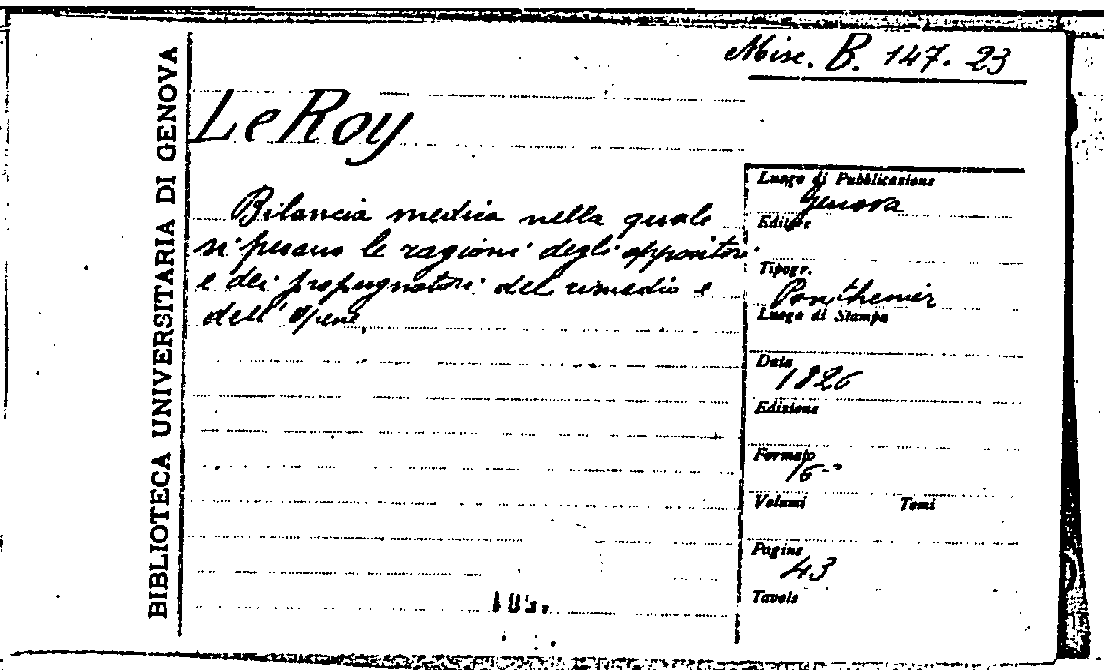 BIBLIOTECA UNIVERSITARIA DI GENOVA
Misc. B. 147. 23
Le Roy
Bilancia medica nella quale
si pesano le ragioni degli oppositori
e dei propugnatori del rimedio e
dell'
Luogo di Pubblicazione
Genova
Editore
Tipogr.
Ponthenier
Luogo di Stampa
Data
1826
Edizione
Formato
16°
Volumi Tomi
Pagine
43
Tavole